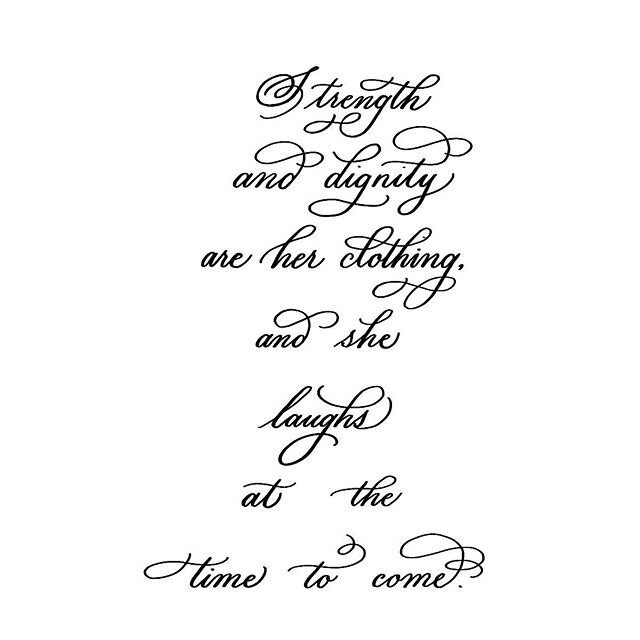 Strength
and dignity
are her clothing,
and she
laughs
at the
time to come.